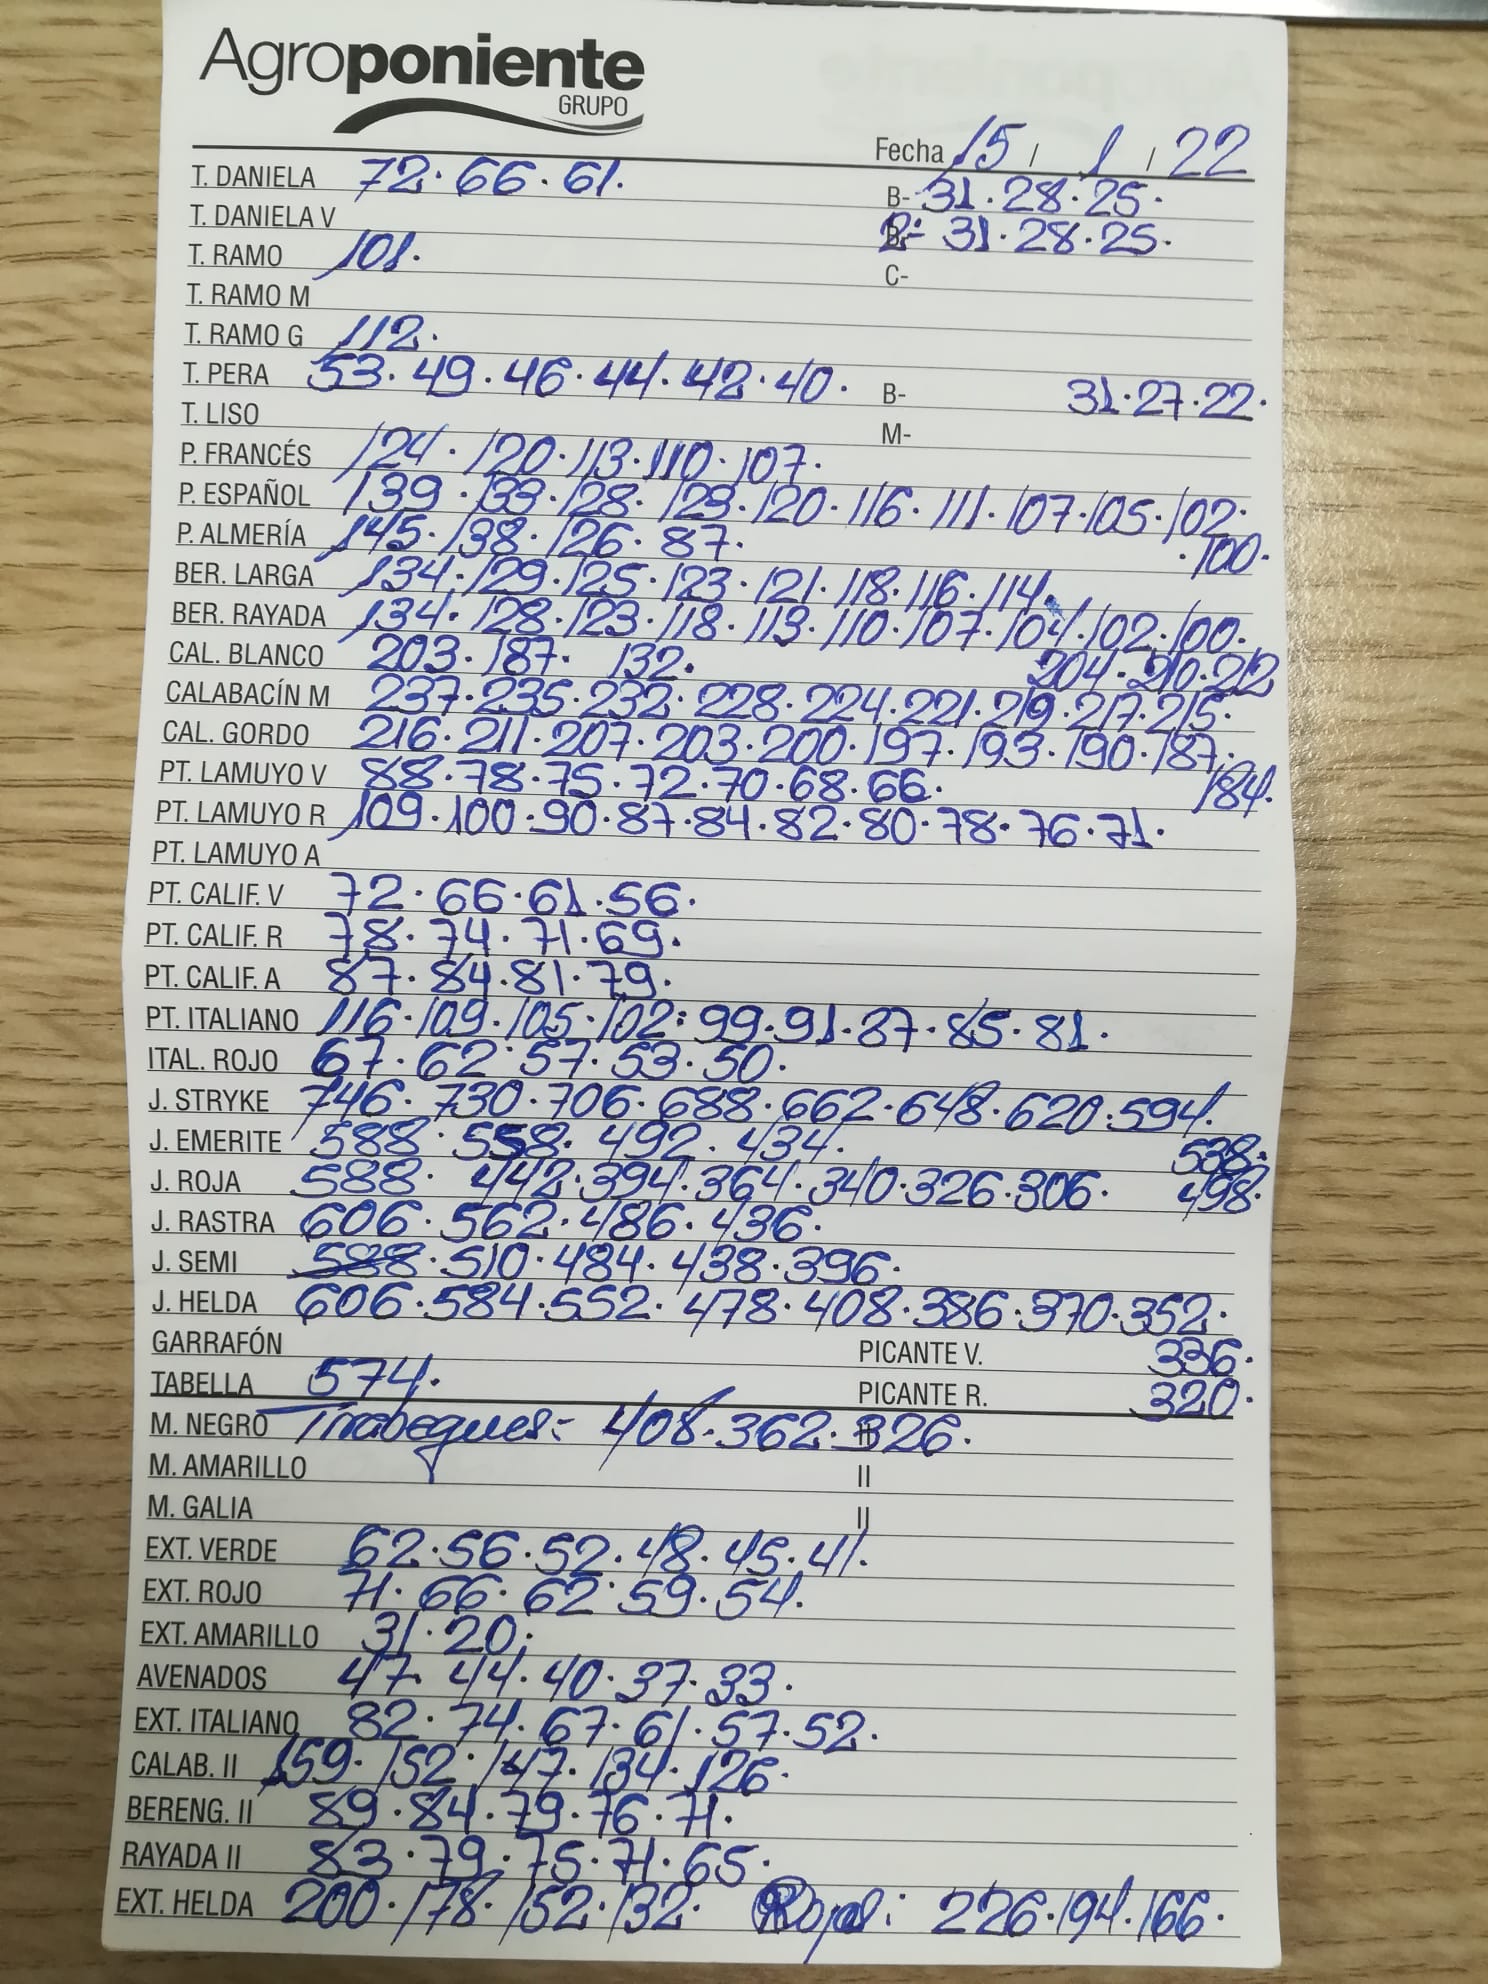 Agroponiente
GRUPO
Fecha 15 / 1 / 22
T. DANIELA 72. 66. 61. B- 31. 28. 25.
T. DANIELA V 31. 28. 25.
T. RAMO 101. C-
T. RAMO M
T. RAMO G 112.
T. PERA 53. 49. 46. 44. 42. 40. B- 31. 27. 22.
T. LISO M-
P. FRANCÉS 124. 120. 113. 110. 107.
P. ESPAÑOL 139. 133. 128. 123. 120. 116. 111. 107. 105. 102.
P. ALMERÍA 145. 138. 126. 87. .100.
BER. LARGA 134. 129. 125. 123. 121. 118. 116. 114.
BER. RAYADA 134. 128. 123. 118. 113. 110. 107. 104. 102. 100.
CAL. BLANCO 203. 187. 132. 204. 210. 212
CALABACÍN M 237. 235. 232. 228. 224. 221. 219. 217. 215.
CAL. GORDO 216. 211. 207. 203. 200. 197. 193. 190. 187.
PT. LAMUYO V 88. 78. 75. 72. 70. 68. 66. 184.
PT. LAMUYO R 109. 100. 90. 87. 84. 82. 80. 78. 76. 71.
PT. LAMUYO A
PT. CALIF. V 72. 66. 61. 56.
PT. CALIF. R 78. 74. 71. 69.
PT. CALIF. A 87. 84. 81. 79.
PT. ITALIANO 116. 109. 105. 102. 99. 91. 87. 85. 81.
ITAL. ROJO 67. 62. 57. 53. 50.
J. STRYKE 746. 730. 706. 688. 662. 648. 620. 594.
J. EMERITE 588. 558. 492. 434. 538.
J. ROJA 588. 442. 394. 364. 340. 326. 306. 498.
J. RASTRA 606. 562. 486. 436.
J. SEMI 588. 510. 484. 438. 396.
J. HELDA 606. 584. 552. 478. 408. 386. 370. 352.
GARRAFÓN PICANTE V. 336.
TABELLA 574. PICANTE R. 320.
M. NEGRO Trabeques:- 408. 362. 326.
M. AMARILLO II
M. GALIA II
EXT. VERDE 62. 56. 52. 48. 45. 41.
EXT. ROJO 71. 66. 62. 59. 54.
EXT. AMARILLO 31. 20.
AVENADOS 47. 44. 40. 37. 33.
EXT. ITALIANO 82. 74. 67. 61. 57. 52.
CALAB. II 159. 152. 147. 134. 126.
BERENG. II 89. 84. 79. 76. 71.
RAYADA II 83. 79. 75. 71. 65.
EXT. HELDA 200. 178. 152. 132. Roja: 226. 194. 166.